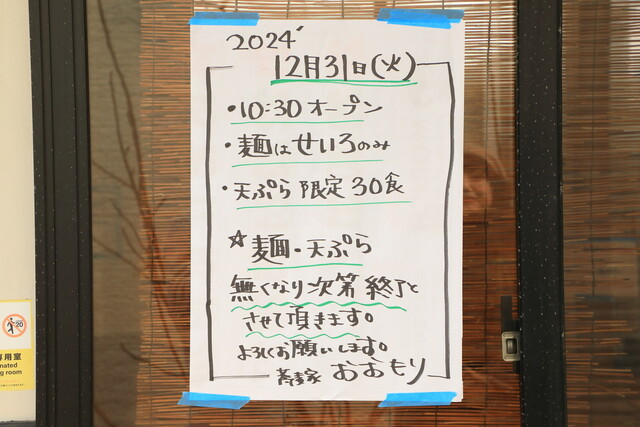 2024'
12月31日(火)
・10:30 オープン
・麺は せいろのみ
・天ぷら 限定 30食
☆麺・天ぷら
無くなり次第 終了と
させて頂きます。
よろしくお願いします。
蕎麦家 おおもり
20
専用室
nated
g room